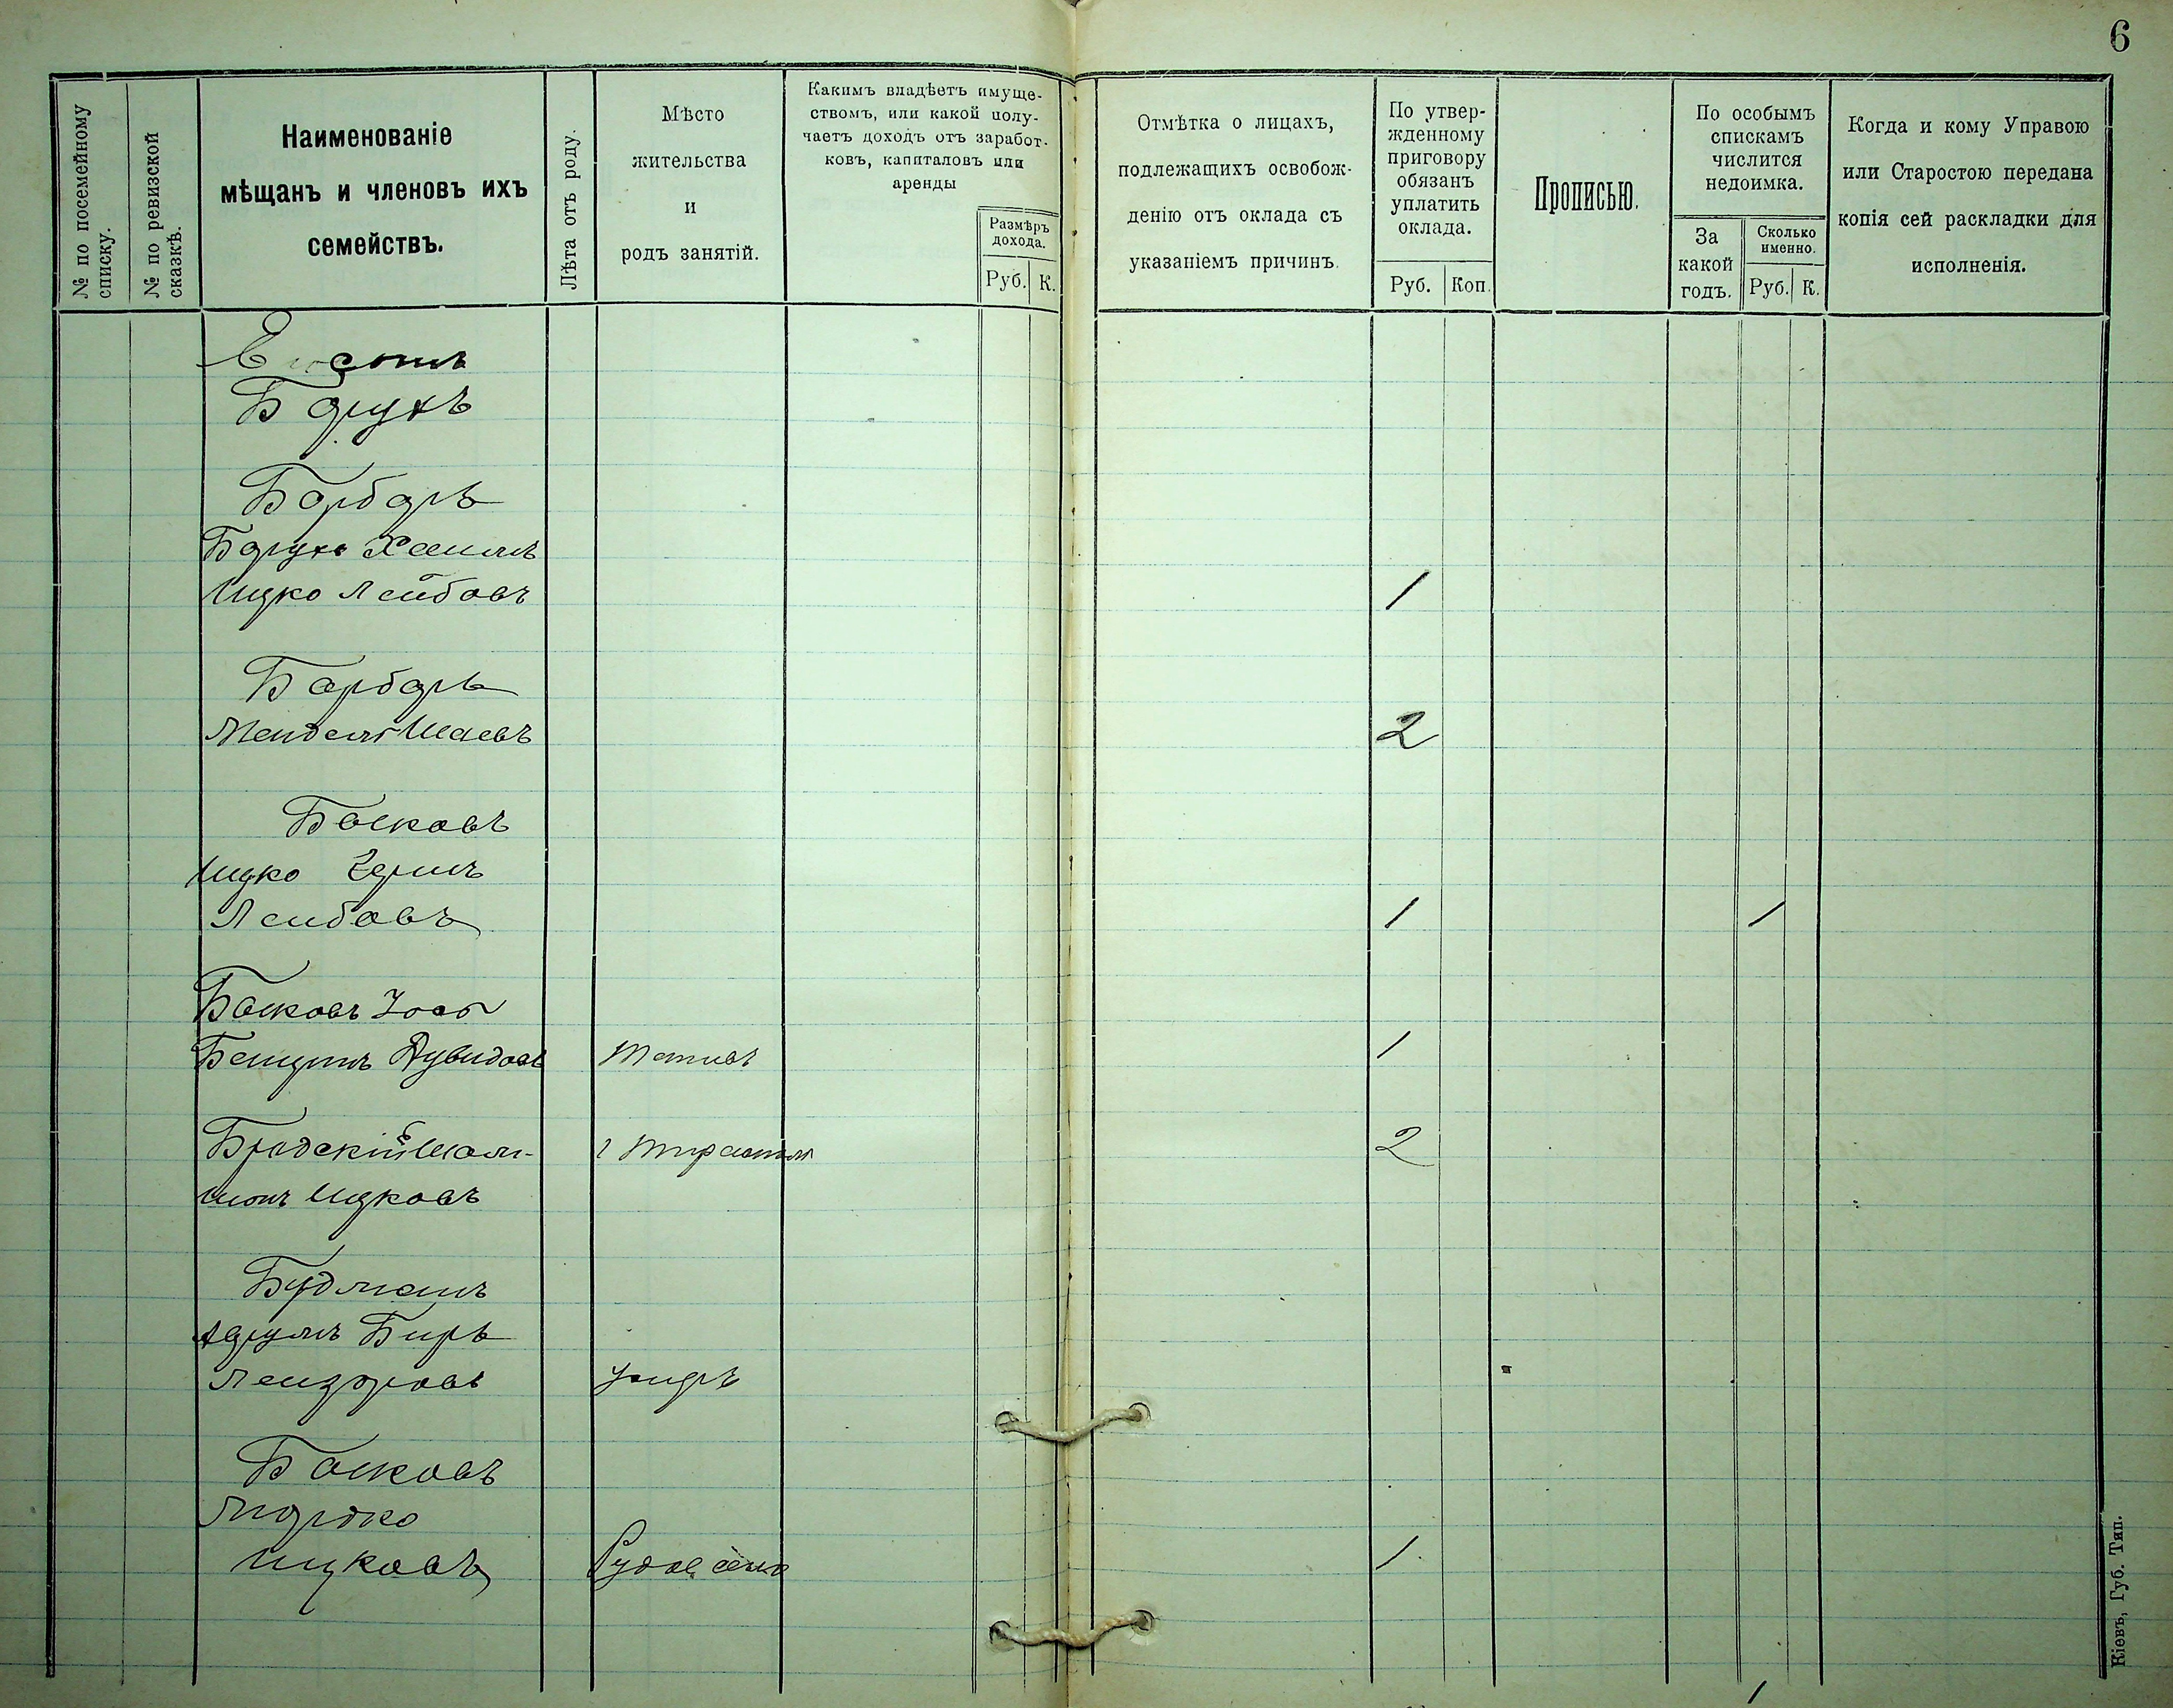 6
№ по посемейному
списку.
№ по ревизской
сказкѣ.
Наименованіе
мѣщанъ и членовъ ихъ
семействъ.
Лѣта отъ роду.
Мѣсто
жительства
и
родъ занятій.
Какимъ владѣетъ имуще-
ствомъ, или какой полу-
чаетъ доходъ отъ заработ-
ковъ, капиталовъ или
аренды
Размѣръ
дохода.
Руб. К.
Отмѣтка о лицахъ,
подлежащихъ освобож-
денію отъ оклада съ
указаніемъ причинъ.
По утвер-
жденному
приговору
обязанъ
уплатить
оклада.
Руб. Коп.
Прописью.
По особымъ
спискамъ
числится
недоимка.
За
какой
годъ.
Сколько
именно.
Руб. К.
Когда и кому Управою
или Старостою передана
копія сей раскладки для
исполненія.
Борухъ
Борбаръ
Борухъ Хаимъ
Ицко Лейбовъ 1
Барбаръ
Мендель Шаевъ 2
Босковъ
Ицко
Лейбовъ 1 1
Босковъ Іось
Бенцинъ Дувидовъ 1
Бродскій Шоли-
2
Ицковъ
Будманъ
Аврумъ Беръ
Лейзоровъ
Босковъ
Мордко
Ицковъ 1
1
Кіевъ, Губ. Тип.